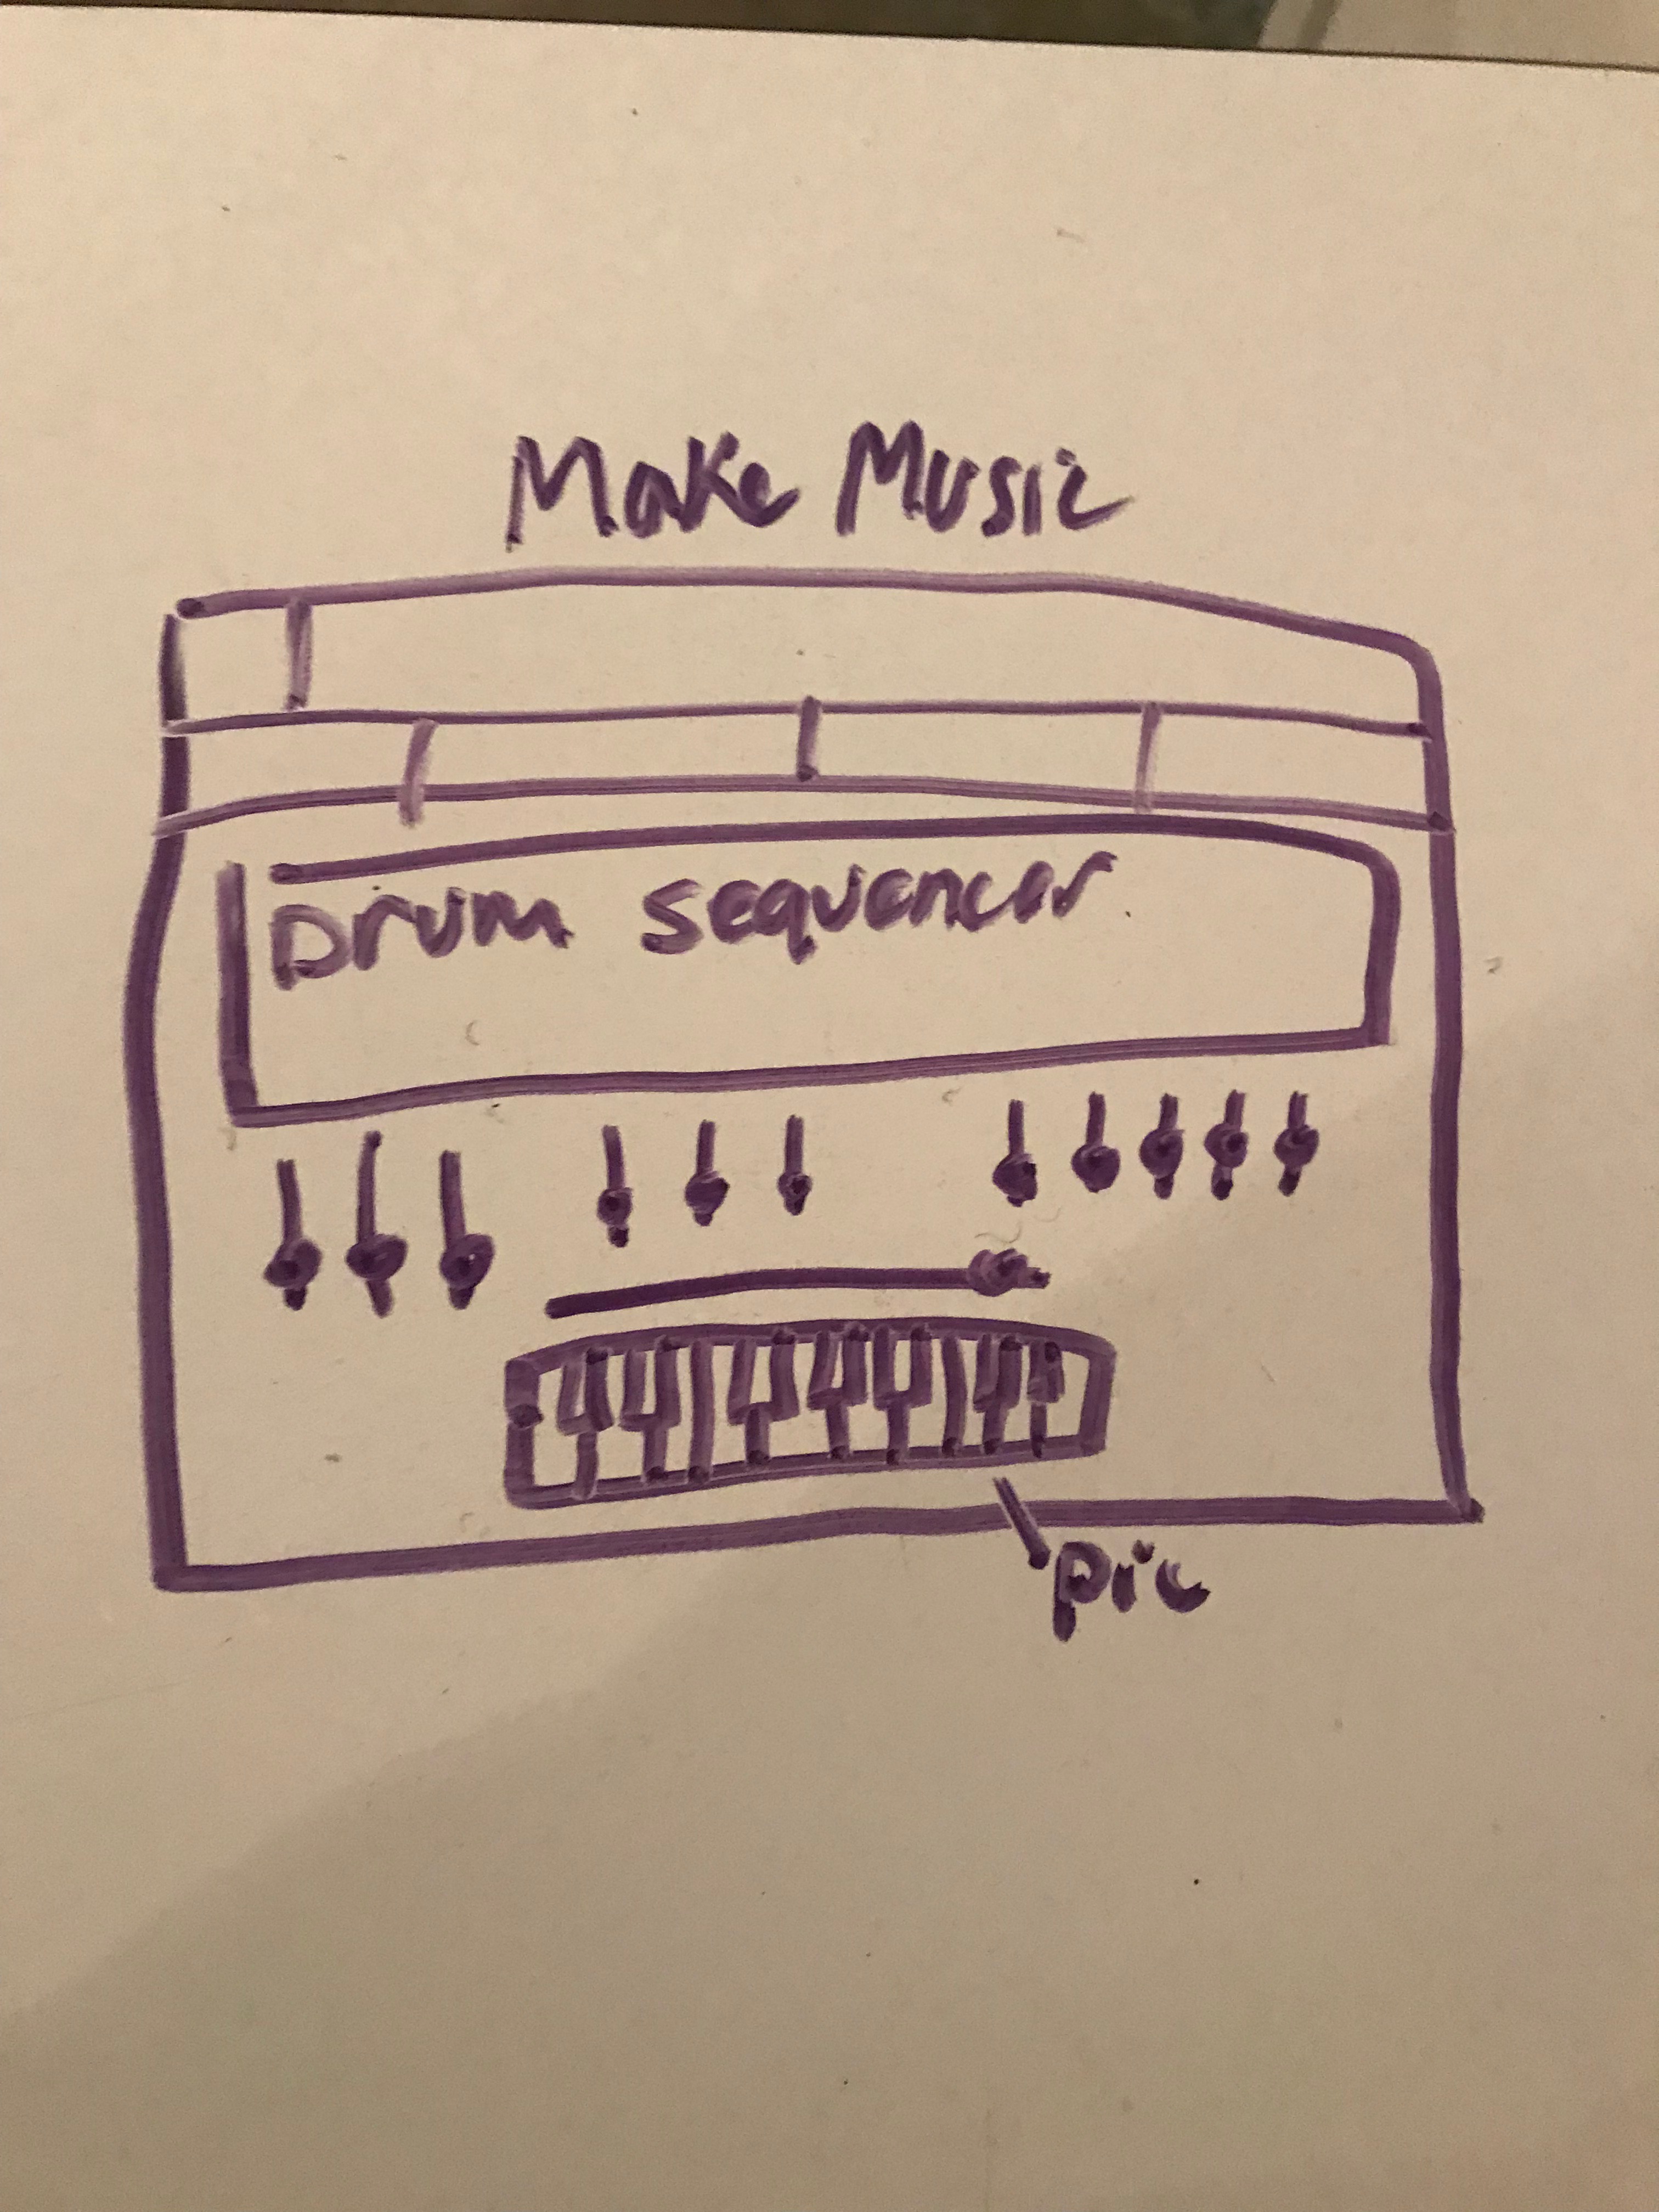 Make Music
Drum sequencer
pic